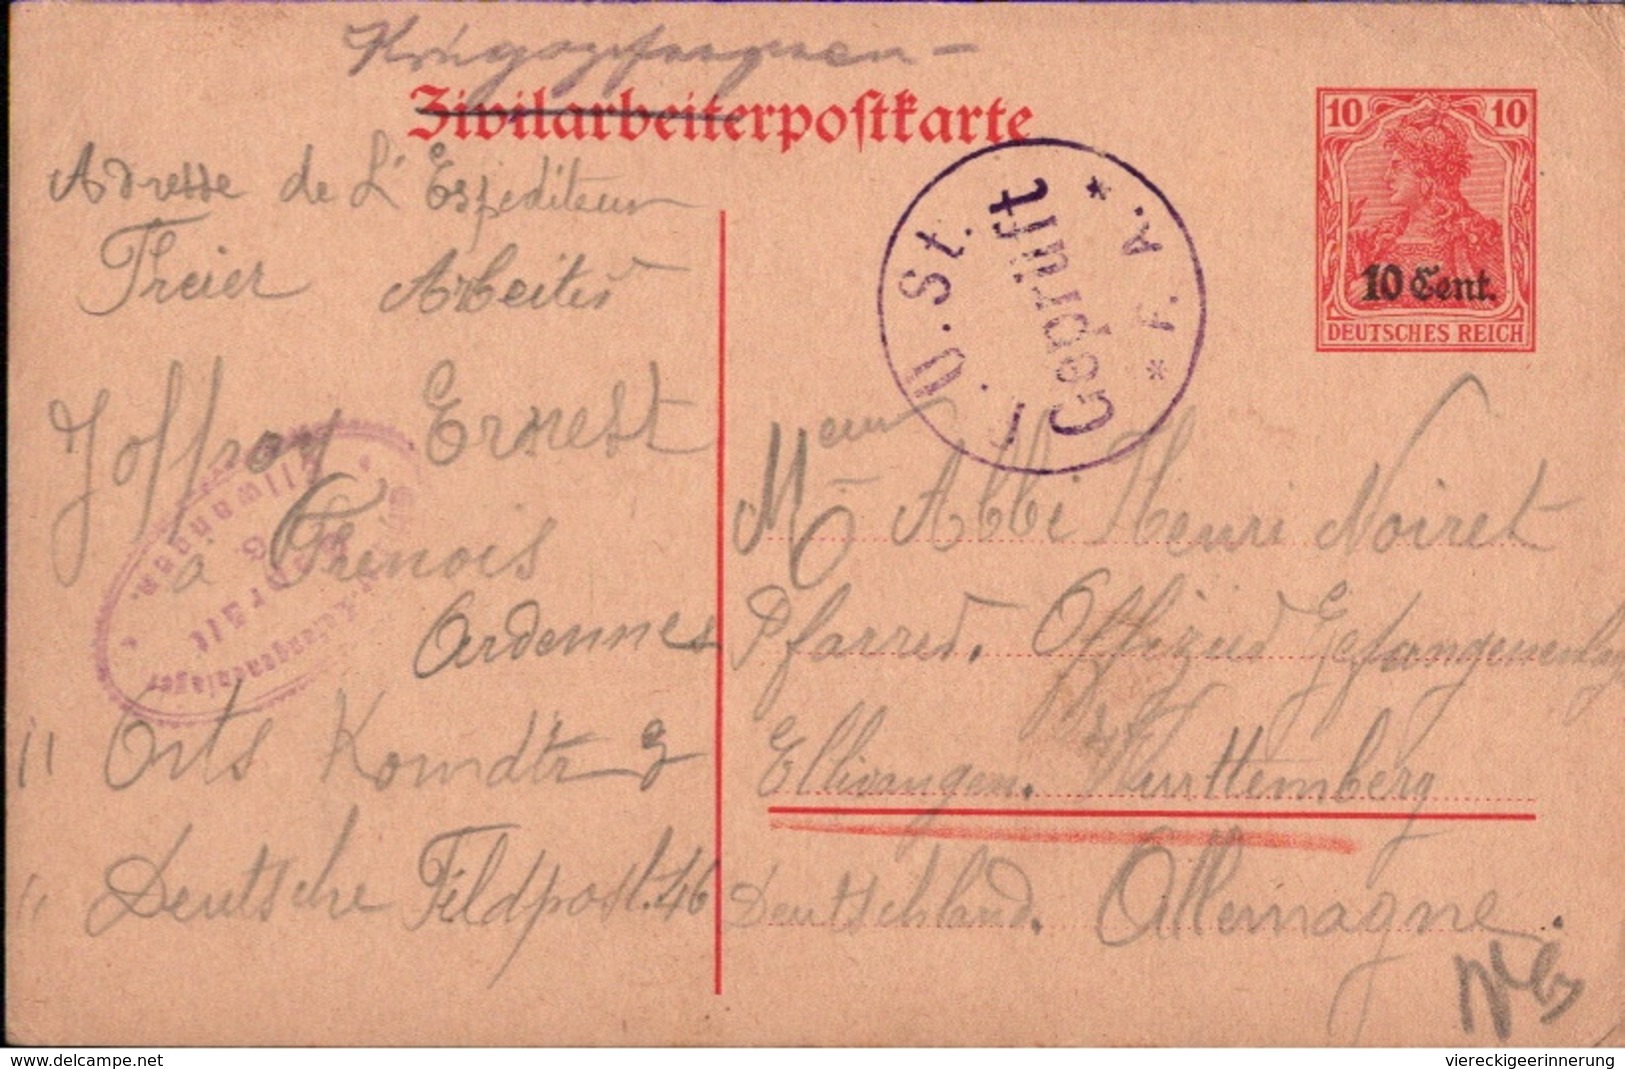 Kriegsgefangenen-
Zivilarbeiterpostkarte
10 10
10 Cent.
DEUTSCHES REICH
Ü.St.
Geprüft
* F. A. *
Adresse de L'Expediteur
Freier Arbeiter
Joffroy Ernest
à Frénois
Ardennes
" Orts Komdtr
" Deutsche Feldpost. 46
Ellwangen.
Geprüft
Meur Abbé Henri Noiret
Pfarrer. Offizier Gefangenenlager
Ellwangen. Wurttemberg
Deutschland. Allemagne.
viereckigeerinnerung